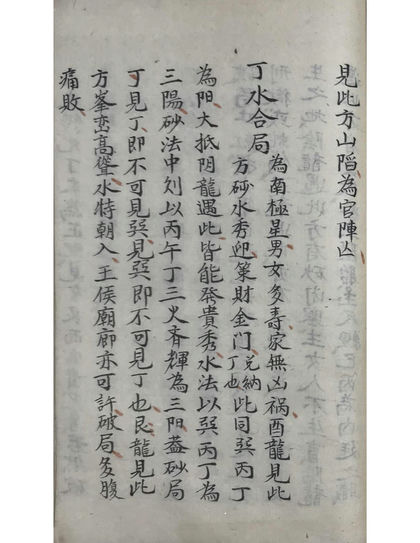 見此方山陷為官陣凶
丁水合局
為南極星男女多壽家無凶禍酉龍見此
方砂水秀迎策財金門兌納丁也此同巽丙丁
為陽大抵陰龍遇此皆能發貴秀水法以巽丙丁為
三陽砂法中則以丙午丁三火齊輝為三陽蓋砂局
丁見丁即不可見巽見巽即不可見丁也艮龍見此
方峯巒高聳水特朝入王侯廟廊亦可許破局多腹
痛敗